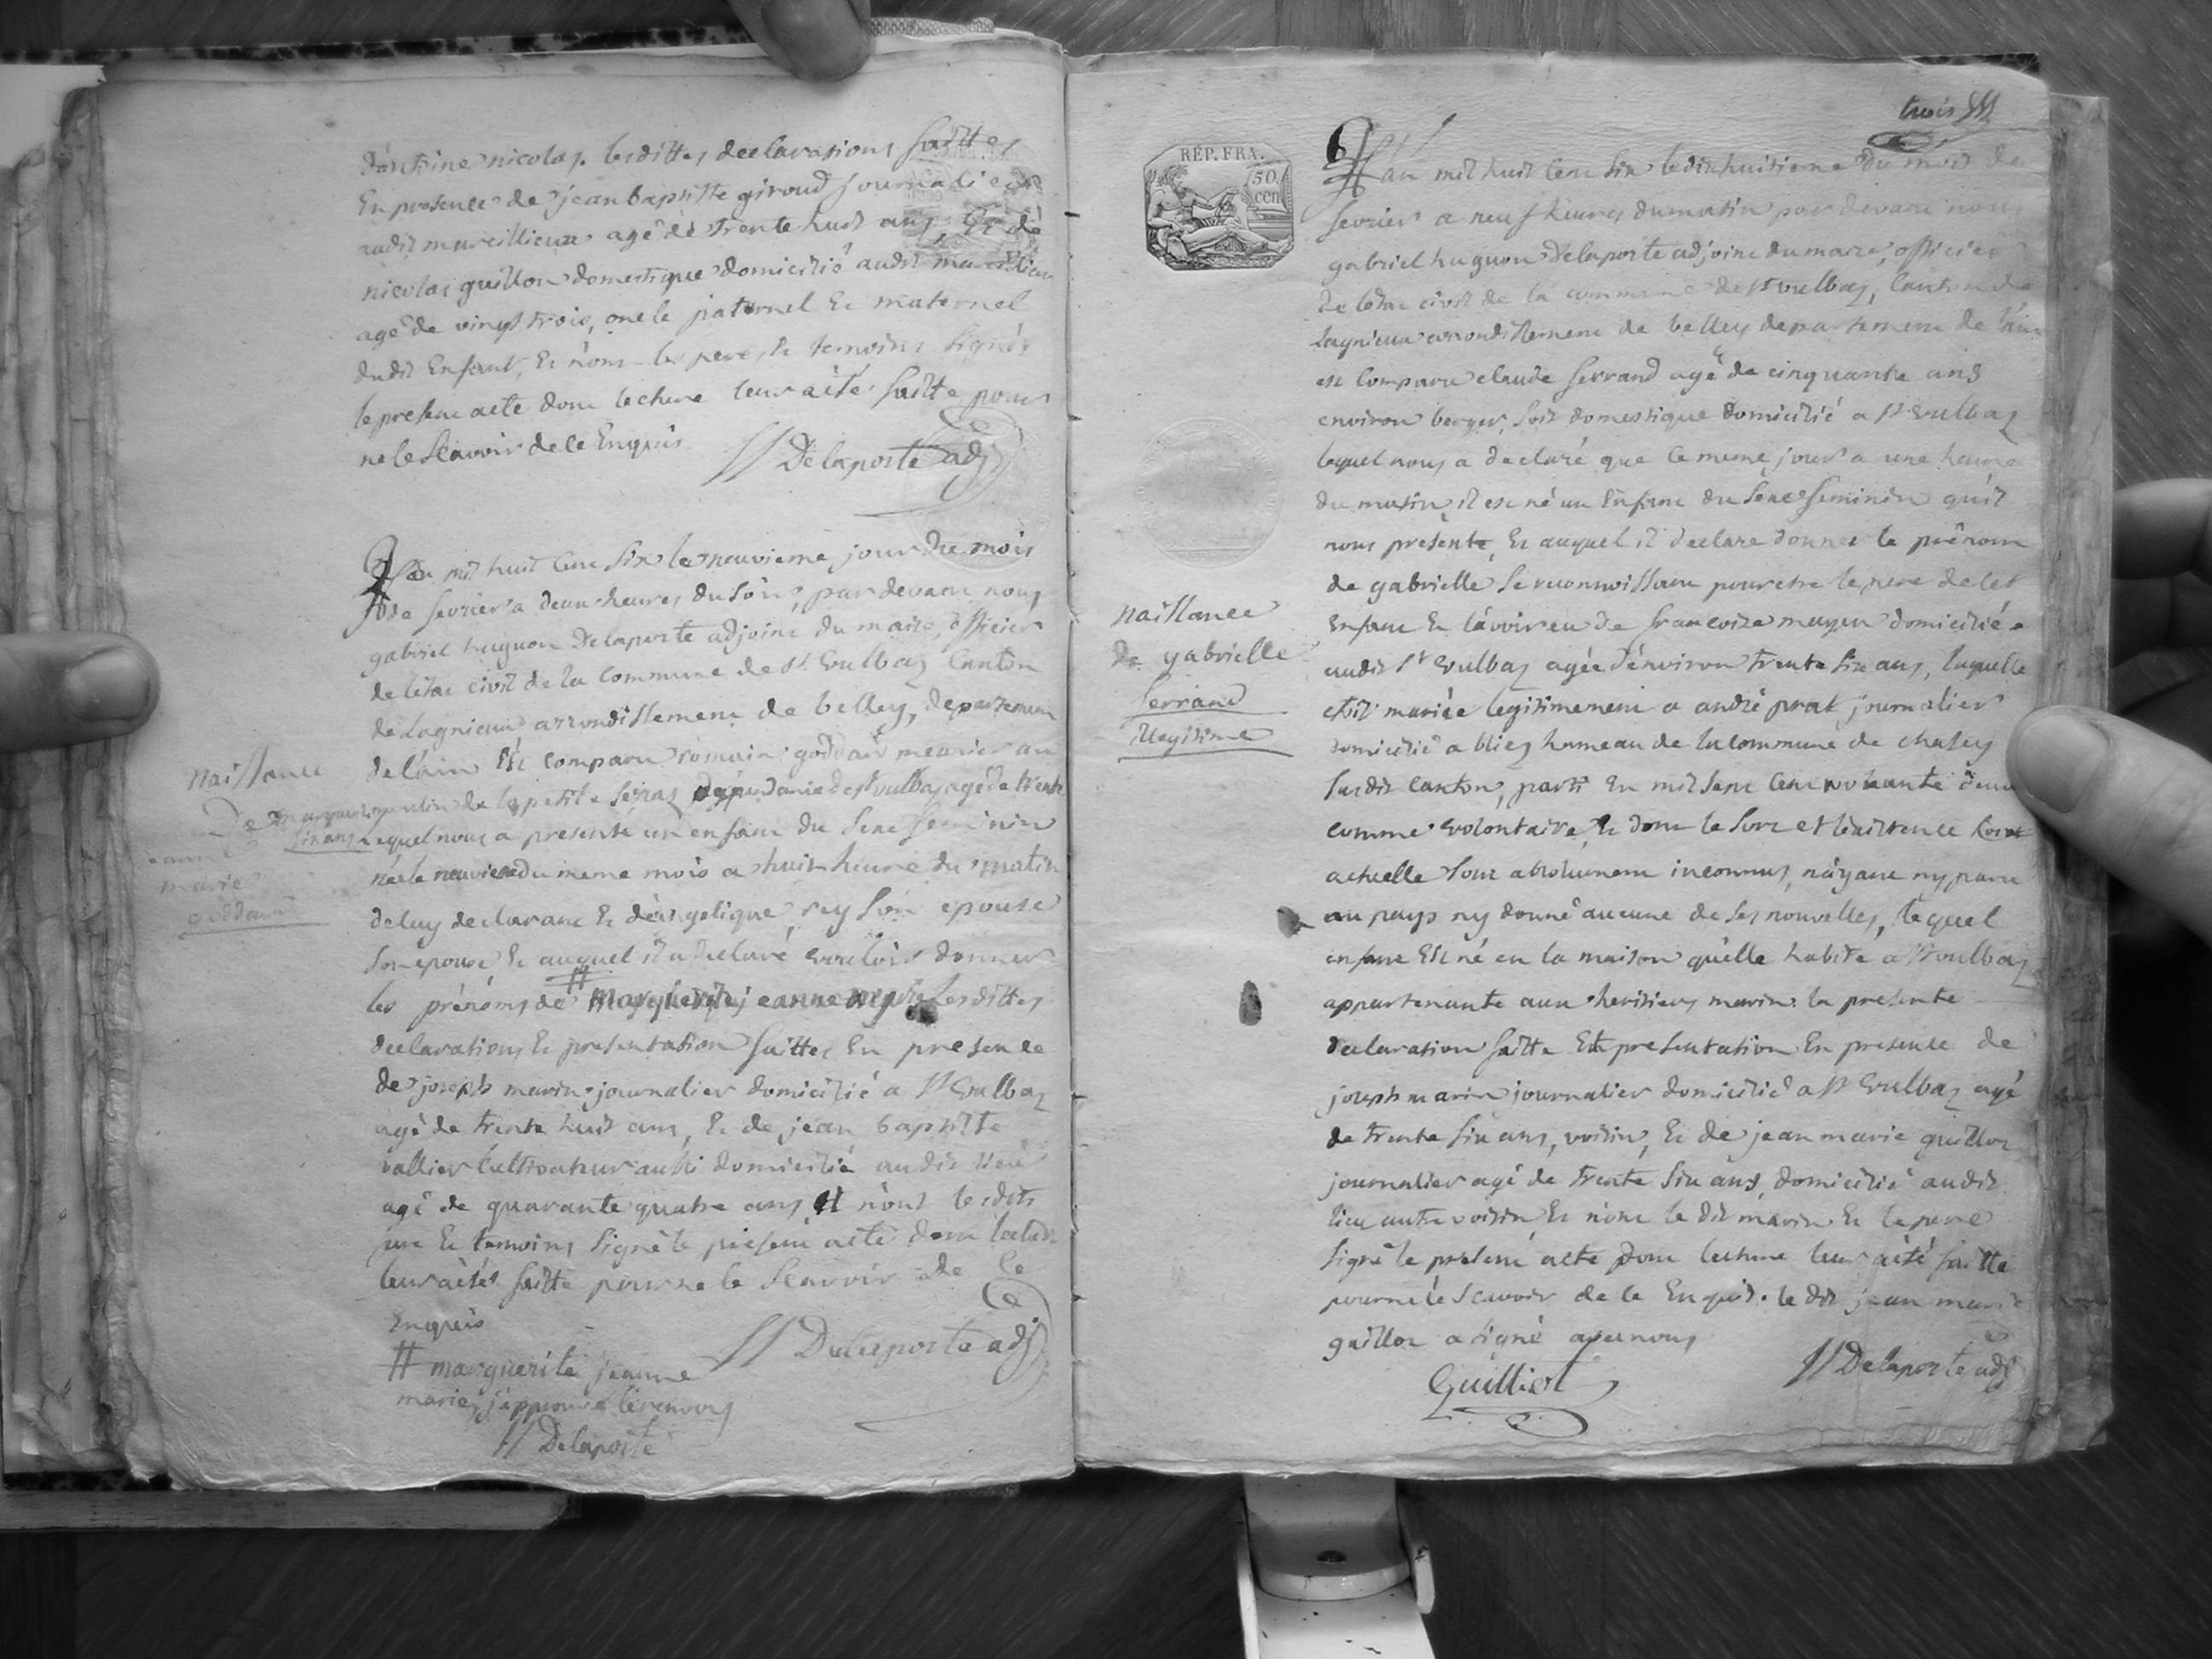 d'antoine nicolas. lesdittes declarations faittes
En presence de jean baptiste giroud journalier
audit marcillieux agé de trente huit ans, Et de
nicolas guillon domestique domicilié audit marcillieux
agé de vingt trois, oncle paternel Et maternel
dudit Enfant, Et n'ont les pere Et temoins signés
le present acte dont lecture leur a eté faitte pour
ne le scavoir de ce Enquis
Delaporte adj
L'an mil huit cent six le neuvieme jour du mois
de fevrier a deux heures du soir, par devant nous
gabriel huguon Delaporte adjoint du maire, officier
de letat civil de la commune de St. Vulbas Canton
de Lagnieux, arrondissement de belley, departement
de l'ain Est comparu romain goddard meunier au
moulin de la petite seras dépendance de St vulbas agé de trente
six ans lequel nous a presenté un enfant du sexe feminin
née le neuvieme du meme mois a huit heure du matin
de luy declarant Et d'angelique rey son epouse
son epouse, Et auquel il a declaré vouloir donner
les prénoms de # marguerite jeanne marie lesdittes
declarations Et presentation faittes En presence
de joseph marin journalier domicilié a St Vulbas
agé de trente huit ans, Et de jean baptiste
vallier cultivateur aussi domicilié au dit lieu
agé de quarante quatre ans Et n'ont lesdits
pere Et temoins signé le present acte dont lecture
leur a étés faitte pour ne le scavoir de ce
Enquis
Delaporte adj
# marguerite jeanne
marie, j'approuve le renvoy
Delaporte
naissance
De marguerite
jeanne
marie
goddard
trois
REP. FRA.
50.
cen
L'an mil huit cent six le dix huitieme du mois de
fevrier a neuf heures du matin par devant nous
gabriel huguon Delaporte adjoint du maire, officier
de letat civil de la commune de St vulbas, Canton de
Lagnieux arrondissement de belley departement de l'ain
est comparu claude ferrand agé de cinquante ans
environ berger, soit domestique domicilié a St Vulbas
lequel nous a declaré que le meme jour a une heure
du matin, il est né un Enfant du sexe feminin qu'il
nous presente, Et auquel il declare donner le prénom
de gabrielle, se reconnoissant pour etre le pere de cet
Enfant Et l'avoir eu de francoise mayen domicilié
audit St Vulbas agée d'environ trente six ans, laquelle
etoit mariée legitimement a andré prat journalier
domicilié a blies hameau de la commune de chasey
susdit canton, parti En mil sept cent nonante deux
comme volontaire, Et dont le sort et l'existence
actuelle sont absolument inconnus, n'ayant ny paru
au pays ny donné aucune de ses nouvelles, lequel
enfant Est né en la maison qu'elle habite a St vulbas
appartenante aux heritiers marin. la presente
declaration faitte Et presentation En presence de
joseph marin journalier domicilié a St Vulbas agé
de trente six ans, voisin, Et de jean marie guillot
journalier agé de trente six ans, domicilié audit
lieu autre voisin Et n'ont le dit marin Et le pere
signé le present acte dont lecture leur a été faitte
pour ne le scavoir de ce Enquis. le dit jean marie
guillot a signé avec nous
Guilliot
Delaporte adj
naissance
de gabrielle
ferrand
illegitime